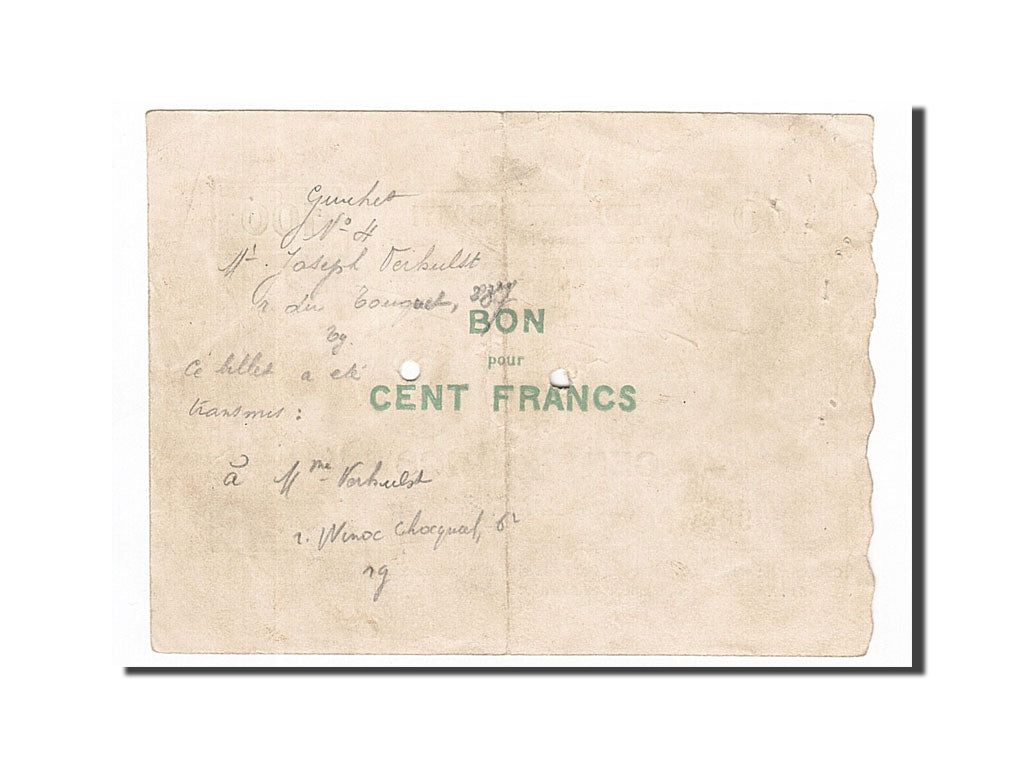 Guichet
N° 4
Mr. Joseph Verhulst
r. du Touquet,
Tg.
Ce billet a été
transmis :
à Mme Verhulst
r. Winoc Chocqueel,
Tg
BON
pour
CENT FRANCS